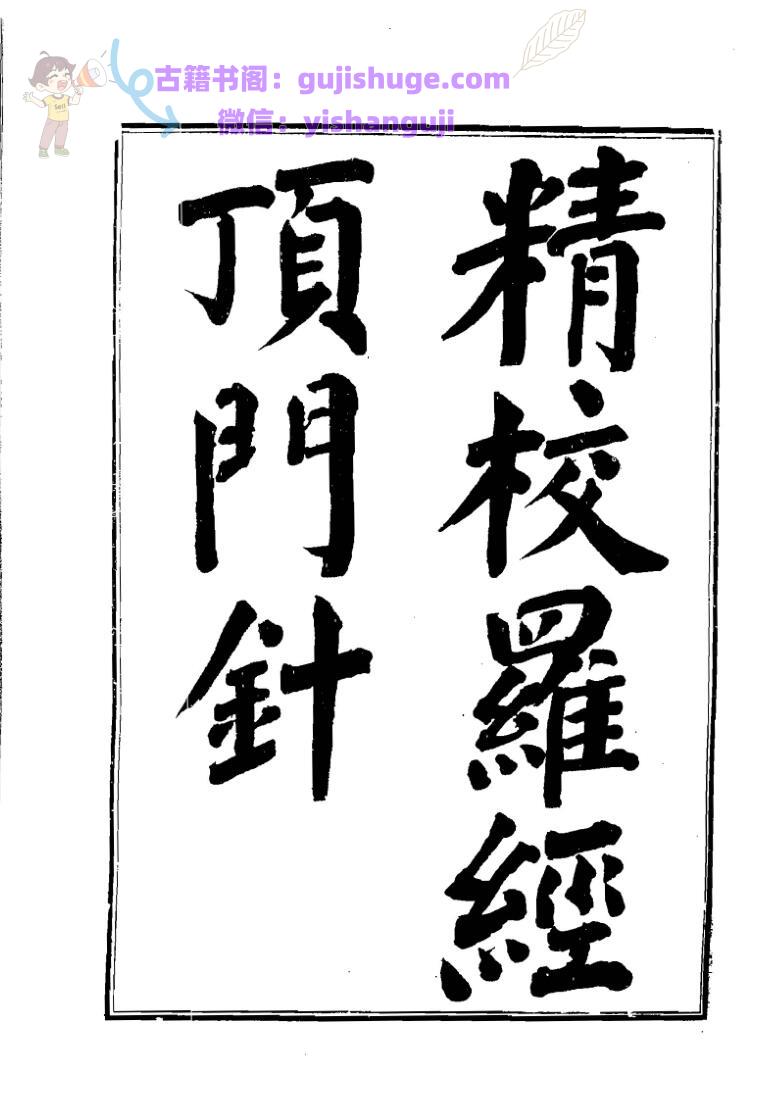 古籍书阁：gujishuge.com
微信：yishanguji
Sell
精校羅經
頂門針